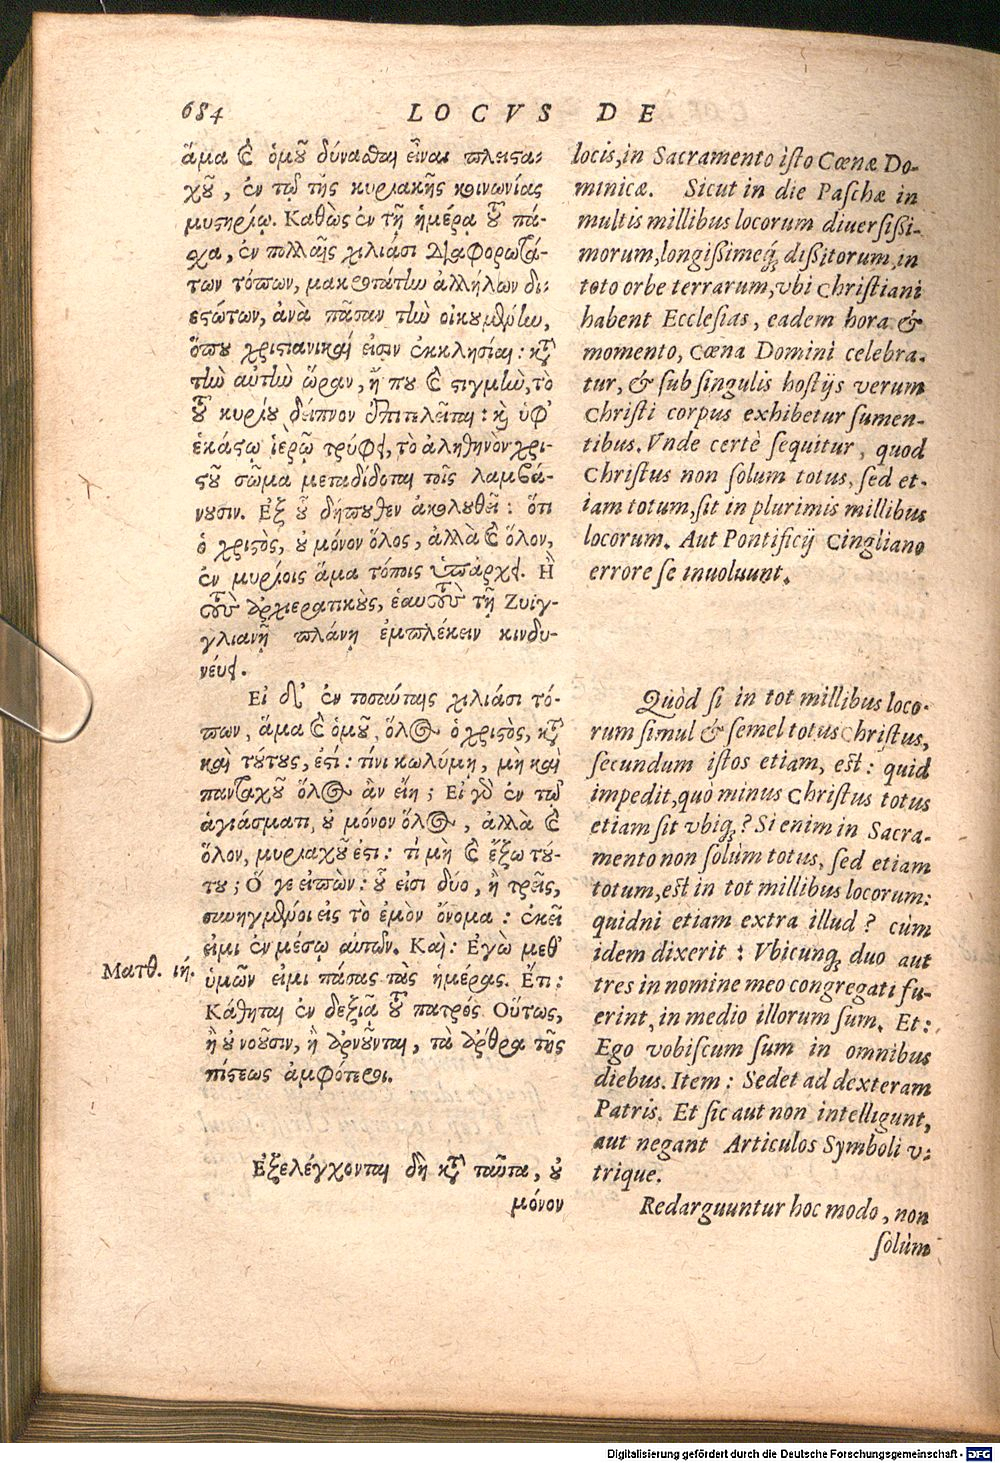 684
LOCVS DE
ἅμα καὶ ὁμοῦ δύναται εἶναι πλειστα-
χοῦ, ἐν τῷ τῆς κυριακῆς κοινωνίας
μυστηρίῳ. Καθὼς ἐν τῇ ἡμέρᾳ τοῦ πά-
σχα, ἐν πολλαῖς χιλιάσι διαφορωτά-
των τόπων, μακροτάτω ἀλλήλων δι-
εστώτων, ἀνὰ πᾶσαν τὴν οἰκουμένην,
ὅπου χριστιανικαί εἰσιν ἐκκλησίαι: κατὰ
τὴν αὐτὴν ὥραν, ἤ που καὶ στιγμὴν, τὸ
τοῦ κυρίου δεῖπνον ἐπιτελεῖται: καὶ ὑφ'
ἑκάστῳ ἱερῷ τρύφει, τὸ ἀληθινὸν χρι-
στοῦ σῶμα μεταδίδοται τοῖς λαμβά-
νουσιν. Εξ οὗ δήπουθεν ἀκολουθεῖ: ὅτι
ὁ χριστὸς, οὐ μόνον ὅλος, ἀλλὰ καὶ ὅλον,
ἐν μυρίοις ἅμα τόποις ὑπάρχει. Ἢ
τοὺς ἀρχιερατικοὺς, ἑαυτοὺς τῇ Ζυίγ-
γλιανῇ πλάνῃ ἐμπλέκειν κινδυ-
νεύει.
Εἰ δ' ἐν τοσαύταις χιλιάσι τό-
πων, ἅμα καὶ ὁμοῦ, ὅλος ὁ χριστὸς, κατὰ
καὶ τούτους, ἐστί: τίνι κωλύμῃ, μὴ καὶ
πανταχοῦ ὅλος ἂν εἴη; Εἰ γὰρ ἐν τῷ
ἁγιάσματι, οὐ μόνον ὅλος, ἀλλὰ καὶ
ὅλον, μυριαχοῦ ἐστι: τί μὴ καὶ ἔξω τού-
του; Ὅ γε εἰπὼν: οὗ εἰσι δύο, ἢ τρεῖς,
συνηγμένοι εἰς τὸ ἐμὸν ὄνομα: ἐκεῖ
εἰμι ἐν μέσῳ αὐτῶν. Καὶ: Εγὼ μεθ'
Ματθ. ιή.
ὑμῶν εἰμι πάσας τὰς ἡμέρας. Ἔτι:
Κάθηται ἐν δεξιᾷ τοῦ πατρός. Οὕτως,
ἢ οὐ νοοῦσιν, ἢ ἀρνοῦνται, τὰ ἄρθρα τῆς
πίστεως ἀμφότεροι.
Εξελέγχονται δὴ κατὰ ταῦτα, οὐ
μόνον
locis, in Sacramento isto Cœnæ Do-
minicæ. Sicut in die Paschæ in
multis millibus locorum diuersissi-
morum, longissimeq́; dissitorum, in
toto orbe terrarum, vbi Christiani
habent Ecclesias, eadem hora &
momento, Cœna Domini celebra-
tur, & sub singulis hostijs verum
Christi corpus exhibetur sumen-
tibus. Vnde certè sequitur, quod
Christus non solum totus, sed et-
iam totum, sit in plurimis millibus
locorum. Aut Pontificij Cingliano
errore se inuoluunt.
Quòd si in tot millibus loco-
rum simul & semel totus Christus,
secundum istos etiam, est: quid
impedit, quò minus Christus totus
etiam sit vbiq́;? Si enim in Sacra-
mento non solùm totus, sed etiam
totum, est in tot millibus locorum:
quidni etiam extra illud? cùm
idem dixerit: Vbicunq́; duo aut
tres in nomine meo congregati fu-
erint, in medio illorum sum. Et:
Ego vobiscum sum in omnibus
diebus. Item: Sedet ad dexteram
Patris. Et sic aut non intelligunt,
aut negant Articulos Symboli v-
trique.
Redarguuntur hoc modo, non
solùm
Digitalisierung gefördert durch die Deutsche Forschungsgemeinschaft - DFG